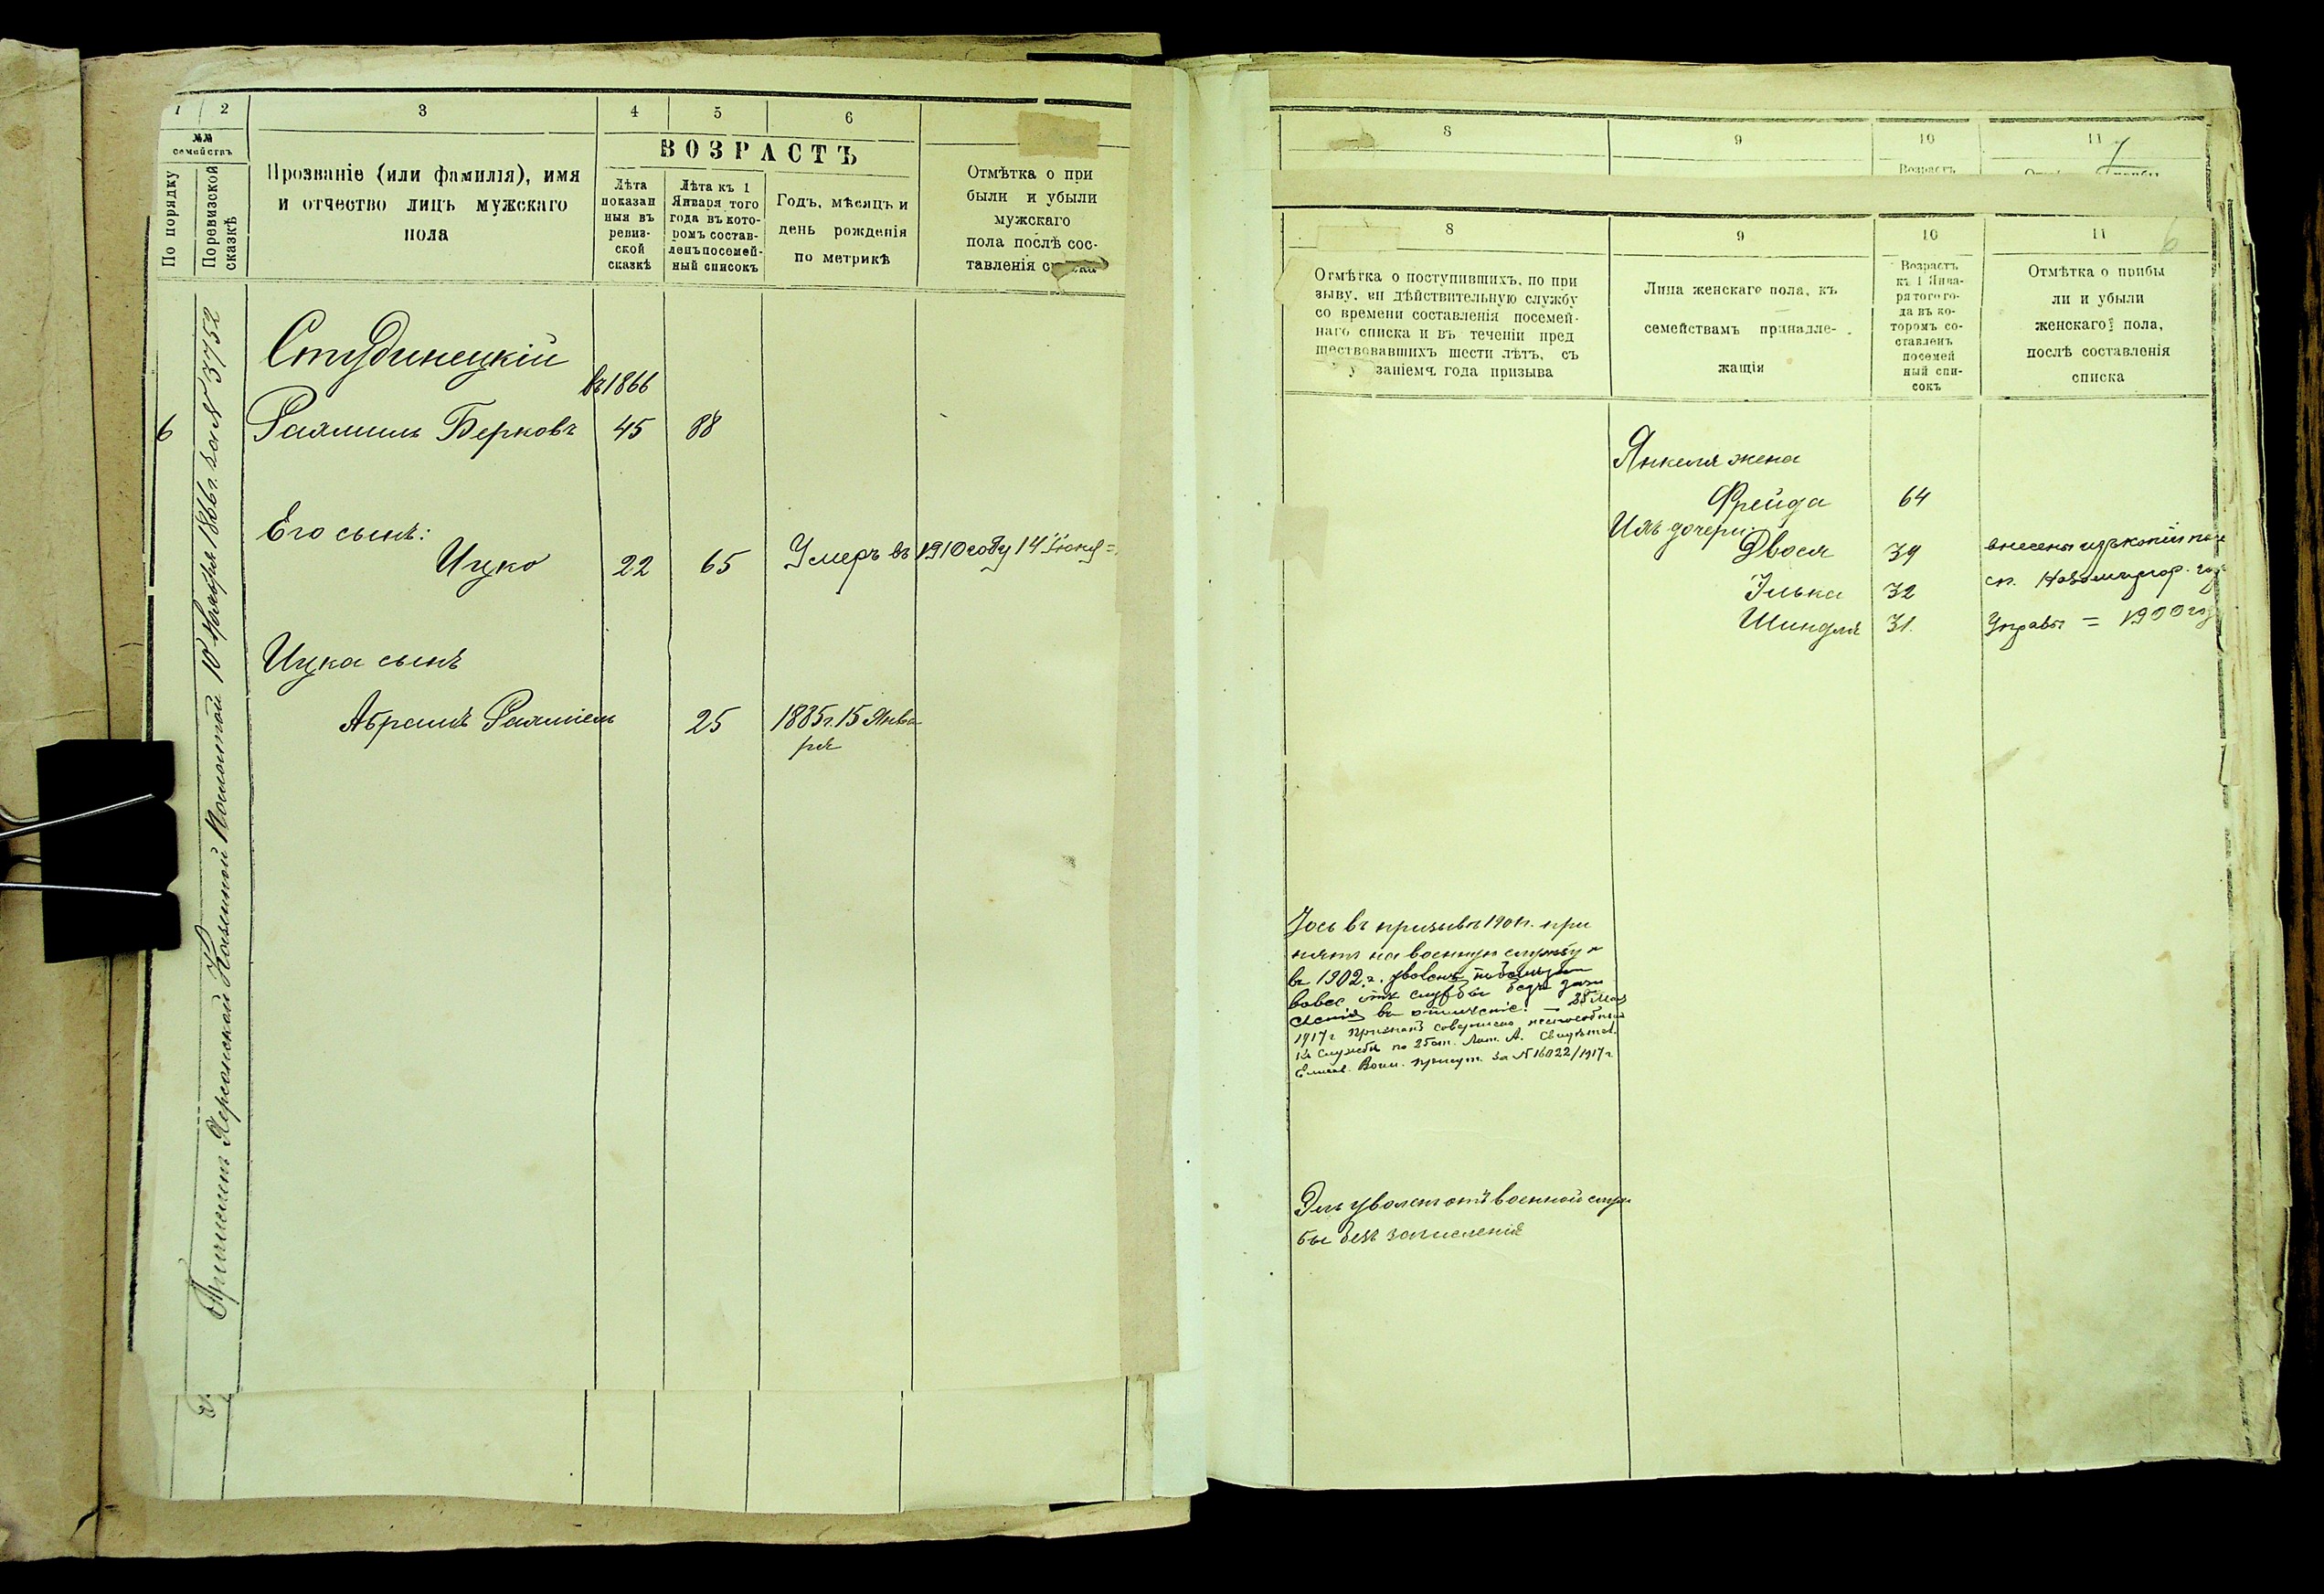 1 2 3 4 5 6
№№
семействъ
По порядку
По ревизской
сказкѣ
Прозваніе (или фамилія), имя
и отчество лицъ мужскаго
пола
ВОЗРАСТЪ
Лѣта
показан
ныя въ
ревиз-
ской
сказкѣ
Лѣта къ 1
Января того
года въ кото-
ромъ состав-
ленъ посемей-
ный списокъ
Годъ, мѣсяцъ и
день рожденія
по метрикѣ
Отмѣтка о при
были и убыли
мужскаго
пола послѣ сос-
тавленія
Причислен Херсонской Казенной Палатой 10 1866 г. за № 3752
Студинецкій
въ 1866
6 Рахмиль Берковъ 45 88
Его сынъ:
Ицко 22 65 Умеръ въ 1910 году 14
Ицка сынъ
Абрамъ Рахміель 25 1885 г. 15 Янва
ря
8 9 10 11
7
Возрастъ
8 9 10 11
6
Отмѣтка о поступившихъ, по при
зыву, на дѣйствительную службу
со времени составленія посемей-
наго списка и въ теченіи пред
шествовавшихъ шести лѣтъ, съ
заніемъ года призыва
Лица женскаго пола, къ
семействамъ принадле-
жащія
Возрастъ
къ 1 Янва-
ря того го-
да въ ко-
торомъ со-
ставленъ
посемей
ный спи-
сокъ
Отмѣтка о прибы
ли и убыли
женскаго пола,
послѣ составленія
списка
Янкеля жена
Фрейда 64
Ихъ дочери:
Двося 39 внесены изъ копіи
Злька 32 сп. Новомиргор.
Шиндля 31. Управы = 1900
Іось въ призывъ 1901 г. при
нятъ на военную службу и
въ 1902 г. уволенъ
вовсе отъ службы безъ зачи
сленія въ ополченіе. —
1917 г. признанъ совершено неспособным
къ службѣ по 25 ст. Лит. А. Свидѣтел.
Воин. присут. за № 16022/1917 г.
Эль уволенъ отъ военной служ
бы безъ зачисленія